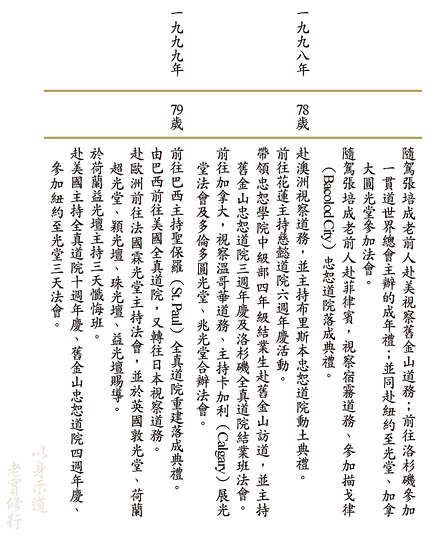 隨駕張培成老前人赴美視察舊金山道務；前往洛杉磯參加
一貫道世界總會主辦的成年禮；並同赴紐約至光堂、加拿
大圓光堂參加法會。
隨駕張培成老前人赴菲律賓，視察宿霧道務、參加描戈律
（Bacolod City）忠恕道院落成典禮。
一九九八年
78歲
赴澳洲視察道務，並主持布里斯本忠恕道院動土典禮。
前往花蓮主持慈懿道院六週年慶活動。
帶領忠恕學院中級部四年級結業生赴舊金山訪道，並主持
舊金山忠恕道院三週年慶及洛杉磯全真道院結業班法會。
前往加拿大，視察溫哥華道務、主持卡加利（Calgary）展光
堂法會及多倫多圓光堂、兆光堂合辦法會。
一九九九年
79歲
前往巴西主持聖保羅（St. Paul）全真道院重建落成典禮。
由巴西前往美國全真道院，又轉往日本視察道務。
赴歐洲前往法國霖光堂主持法會，並於英國敦光堂、荷蘭
超光堂、穎光壇、珠光壇、益光壇賜導。
於荷蘭益光壇主持三天懺悔班。
赴美國主持全真道院十週年慶、舊金山忠恕道院四週年慶、
參加紐約至光堂三天法會。
以身示道
老實修行